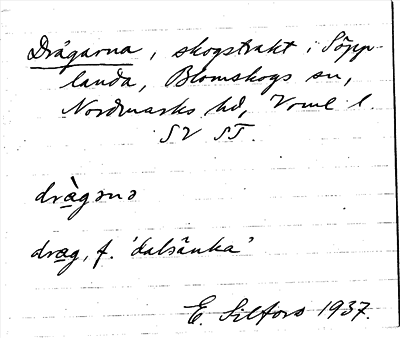 Drågarna, skogstrakt i Söpp-
landa, Blomskogs sn,
Nordmarks hd, Vrml l.
SV ST.
dræ̀gǝnǝ
dræg, f. 'dalsänka'
E. Silfors 1937.